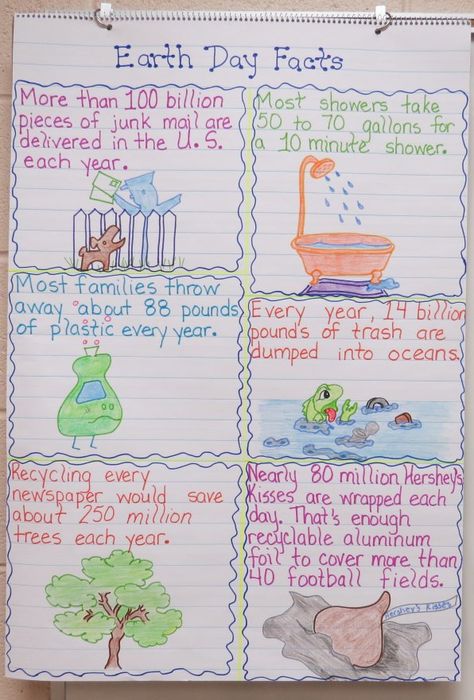 Earth Day Facts
More than 100 billion
pieces of junk mail are
delivered in the U.S.
each year.
Most showers take
50 to 70 gallons for
a 10 minute shower.
Most families throw
away about 88 pounds
of plastic every year.
Every year, 14 billion
pounds of trash are
dumped into oceans.
Recycling every
newspaper would save
about 250 million
trees each year.
Nearly 80 million Hershey's
Kisses are wrapped each
day. That's enough
recyclable aluminum
foil to cover more than
40 football fields.
Hershey's Kisses